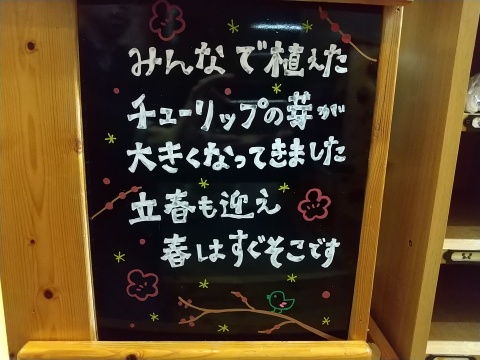 みんなで植えた
チューリップの芽が
大きくなってきました
立春も迎え
春はすぐそこです